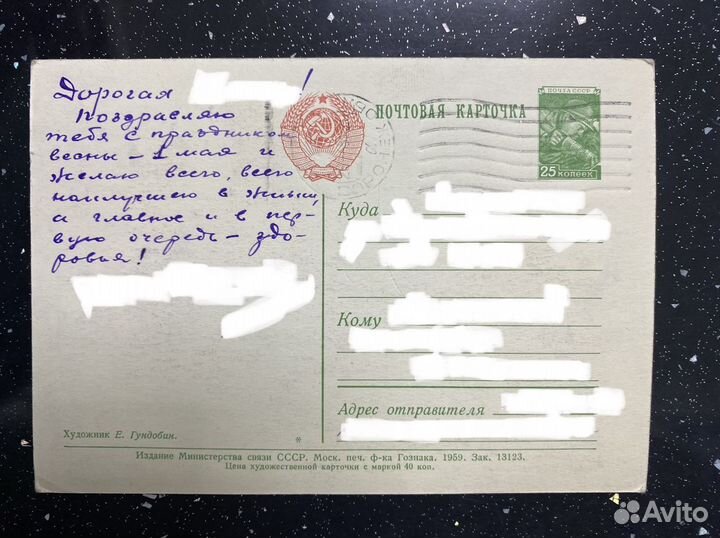 Дорогая !
Поздравляю
тебя с праздником
весны - 1 мая и
желаю всего, всего
наилучшего в жизни,
а главное и в пер-
вую очередь - здо-
ровья!
ПОЧТОВАЯ КАРТОЧКА
ПОЧТА СССР
25 КОПЕЕК
Куда
Кому
Адрес отправителя
Художник Е. Гундобин.
*
Издание Министерства связи СССР. Моск. печ. ф-ка Гознака. 1959. Зак. 13123.
Цена художественной карточки с маркой 40 коп.
Avito